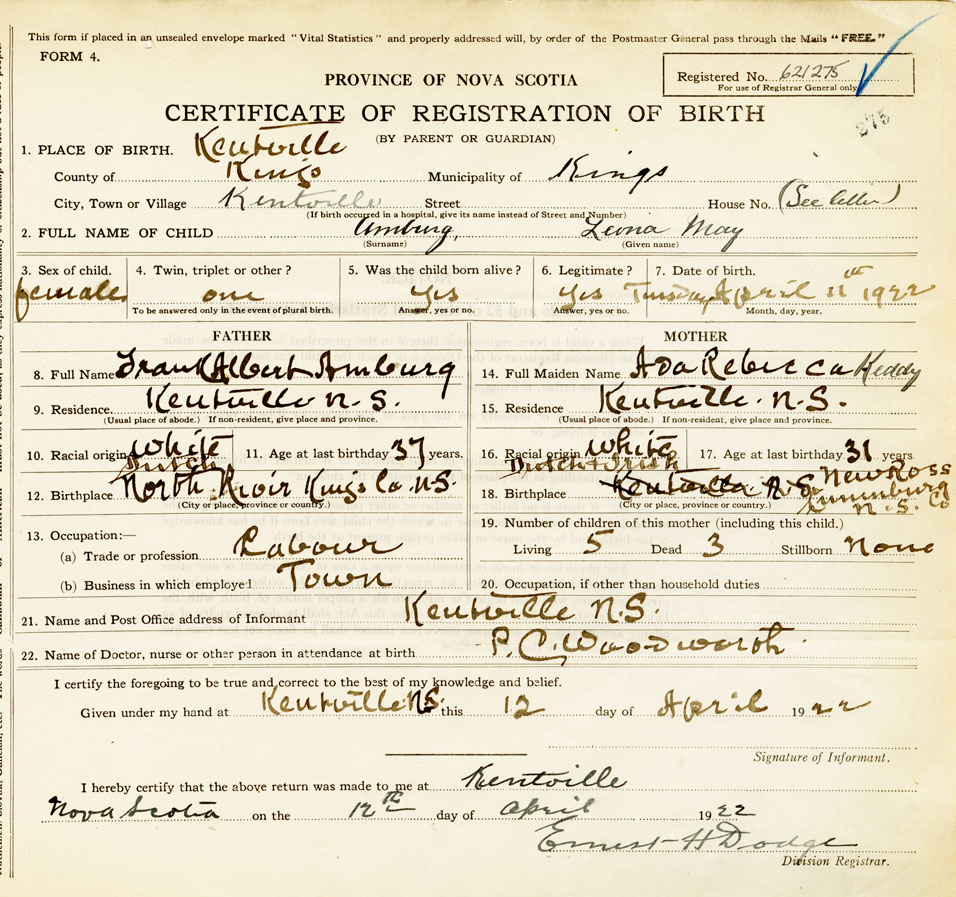 This form if placed in an unsealed envelope marked "Vital Statistics" and properly addressed will, by order of the Postmaster General pass through the Mails "FREE."
FORM 4.
PROVINCE OF NOVA SCOTIA
Registered No. 621275
For use of Registrar General only
275
CERTIFICATE OF REGISTRATION OF BIRTH
(BY PARENT OR GUARDIAN)
1. PLACE OF BIRTH. Kentville
County of Kings Municipality of Kings
City, Town or Village Kentville Street House No. (See letter)
(If birth occurred in a hospital, give its name instead of Street and Number)
2. FULL NAME OF CHILD Amburg, Leona May
(Surname) (Given name)
3. Sex of child. 4. Twin, triplet or other? 5. Was the child born alive? 6. Legitimate? 7. Date of birth.
female one yes yes Tuesday April 11th 1922
To be answered only in the event of plural birth. Answer, yes or no. Answer, yes or no. Month, day, year.
FATHER MOTHER
8. Full Name Frank Albert Amburg 14. Full Maiden Name Ada Rebecca Keddy
9. Residence. Kentville N.S. 15. Residence Kentville. N.S.
(Usual place of abode.) If non-resident, give place and province. (Usual place of abode.) If non-resident, give place and province.
10. Racial origin White 11. Age at last birthday 37 years. 16. Racial origin White 17. Age at last birthday 31 years
Dutch Dutch & Irish New Ross
12. Birthplace North Rivir Kings Co. N.S. 18. Birthplace Kentville N.S. Lunenburg
(City or place, province or country.) (City or place, province or country.) N.S. Co
13. Occupation:— 19. Number of children of this mother (including this child.)
(a) Trade or profession Labour Living 5 Dead 3 Stillborn None
(b) Business in which employed Town 20. Occupation, if other than household duties
21. Name and Post Office address of Informant Kentville N.S.
22. Name of Doctor, nurse or other person in attendance at birth P. C. Woodworth
I certify the foregoing to be true and correct to the best of my knowledge and belief.
Given under my hand at Kentville N.S. this 12 day of April 1922
Signature of Informant.
I hereby certify that the above return was made to me at Kentville
Nova Scotia on the 12th day of April 1922
Ernest H Dodge
Division Registrar.